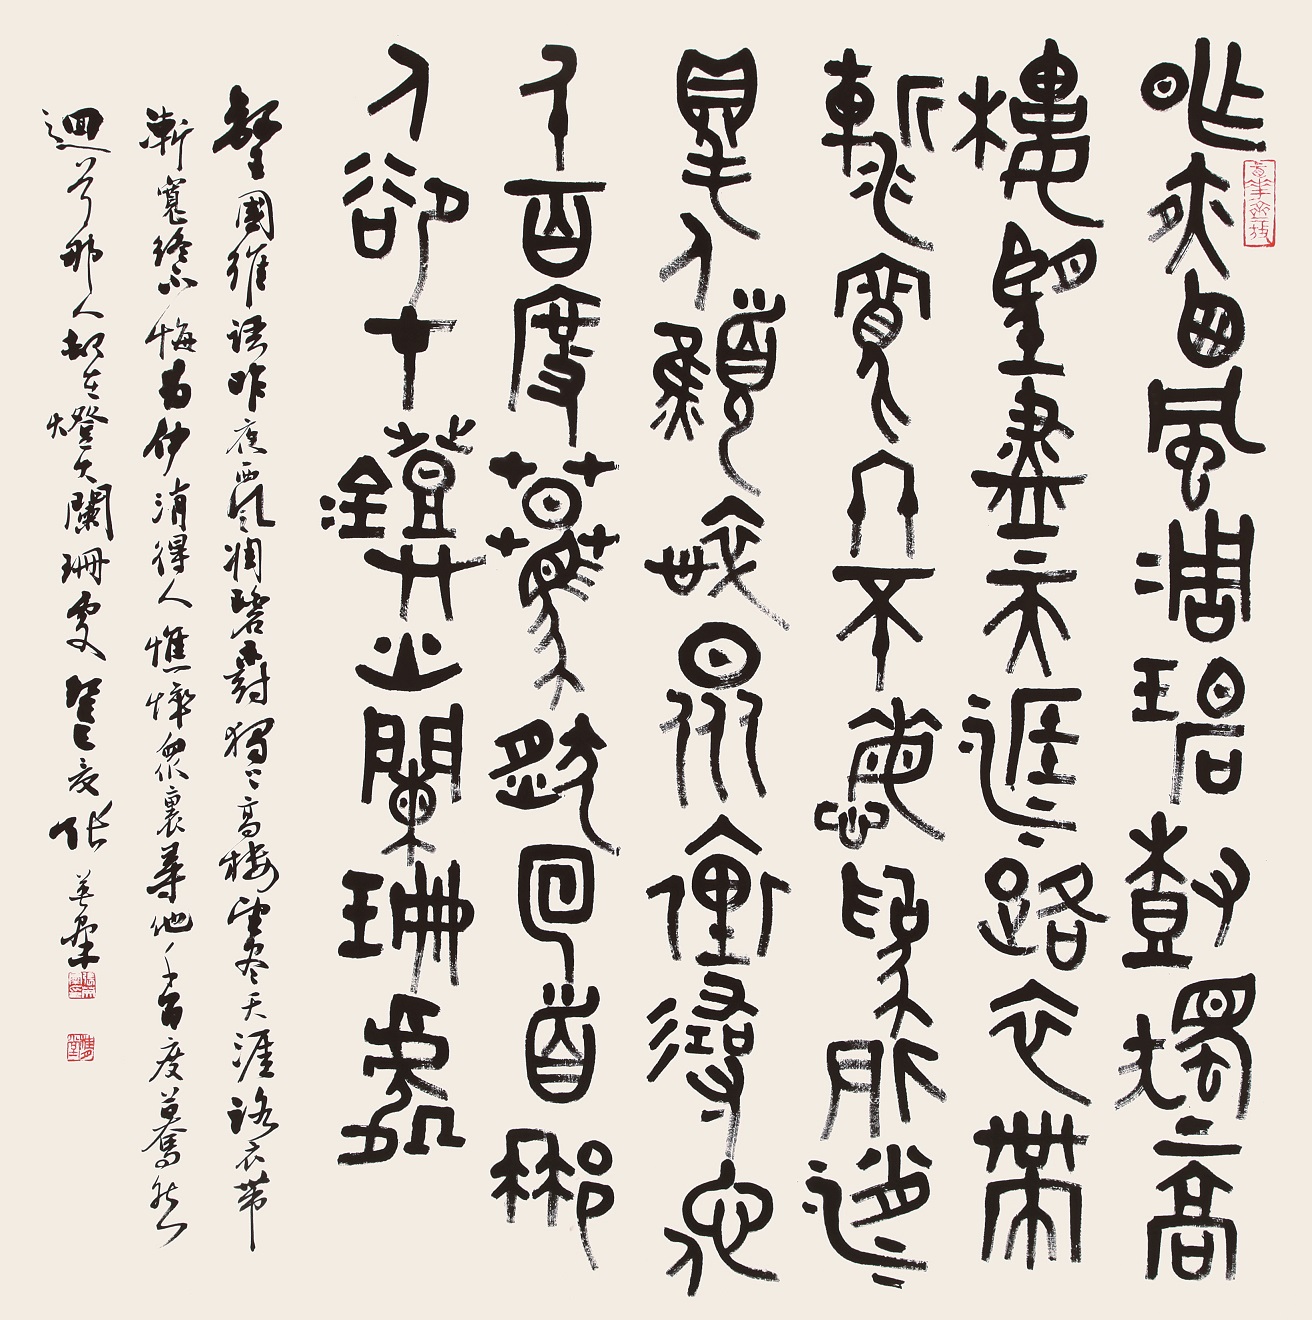 昨夜西風凋碧樹獨上高
樓望盡天涯路衣帶
漸寬終不悔為伊消
得人顦悴眾裏尋他
千百度驀然回首那
人卻在鐙火闌珊處
王國維語昨夜西風凋碧樹獨上高樓望盡天涯路衣帶
漸寬終不悔為伊消得人憔悴眾裏尋他千百度驀然
迴首那人卻在燈火闌珊處癸巳夏張英群